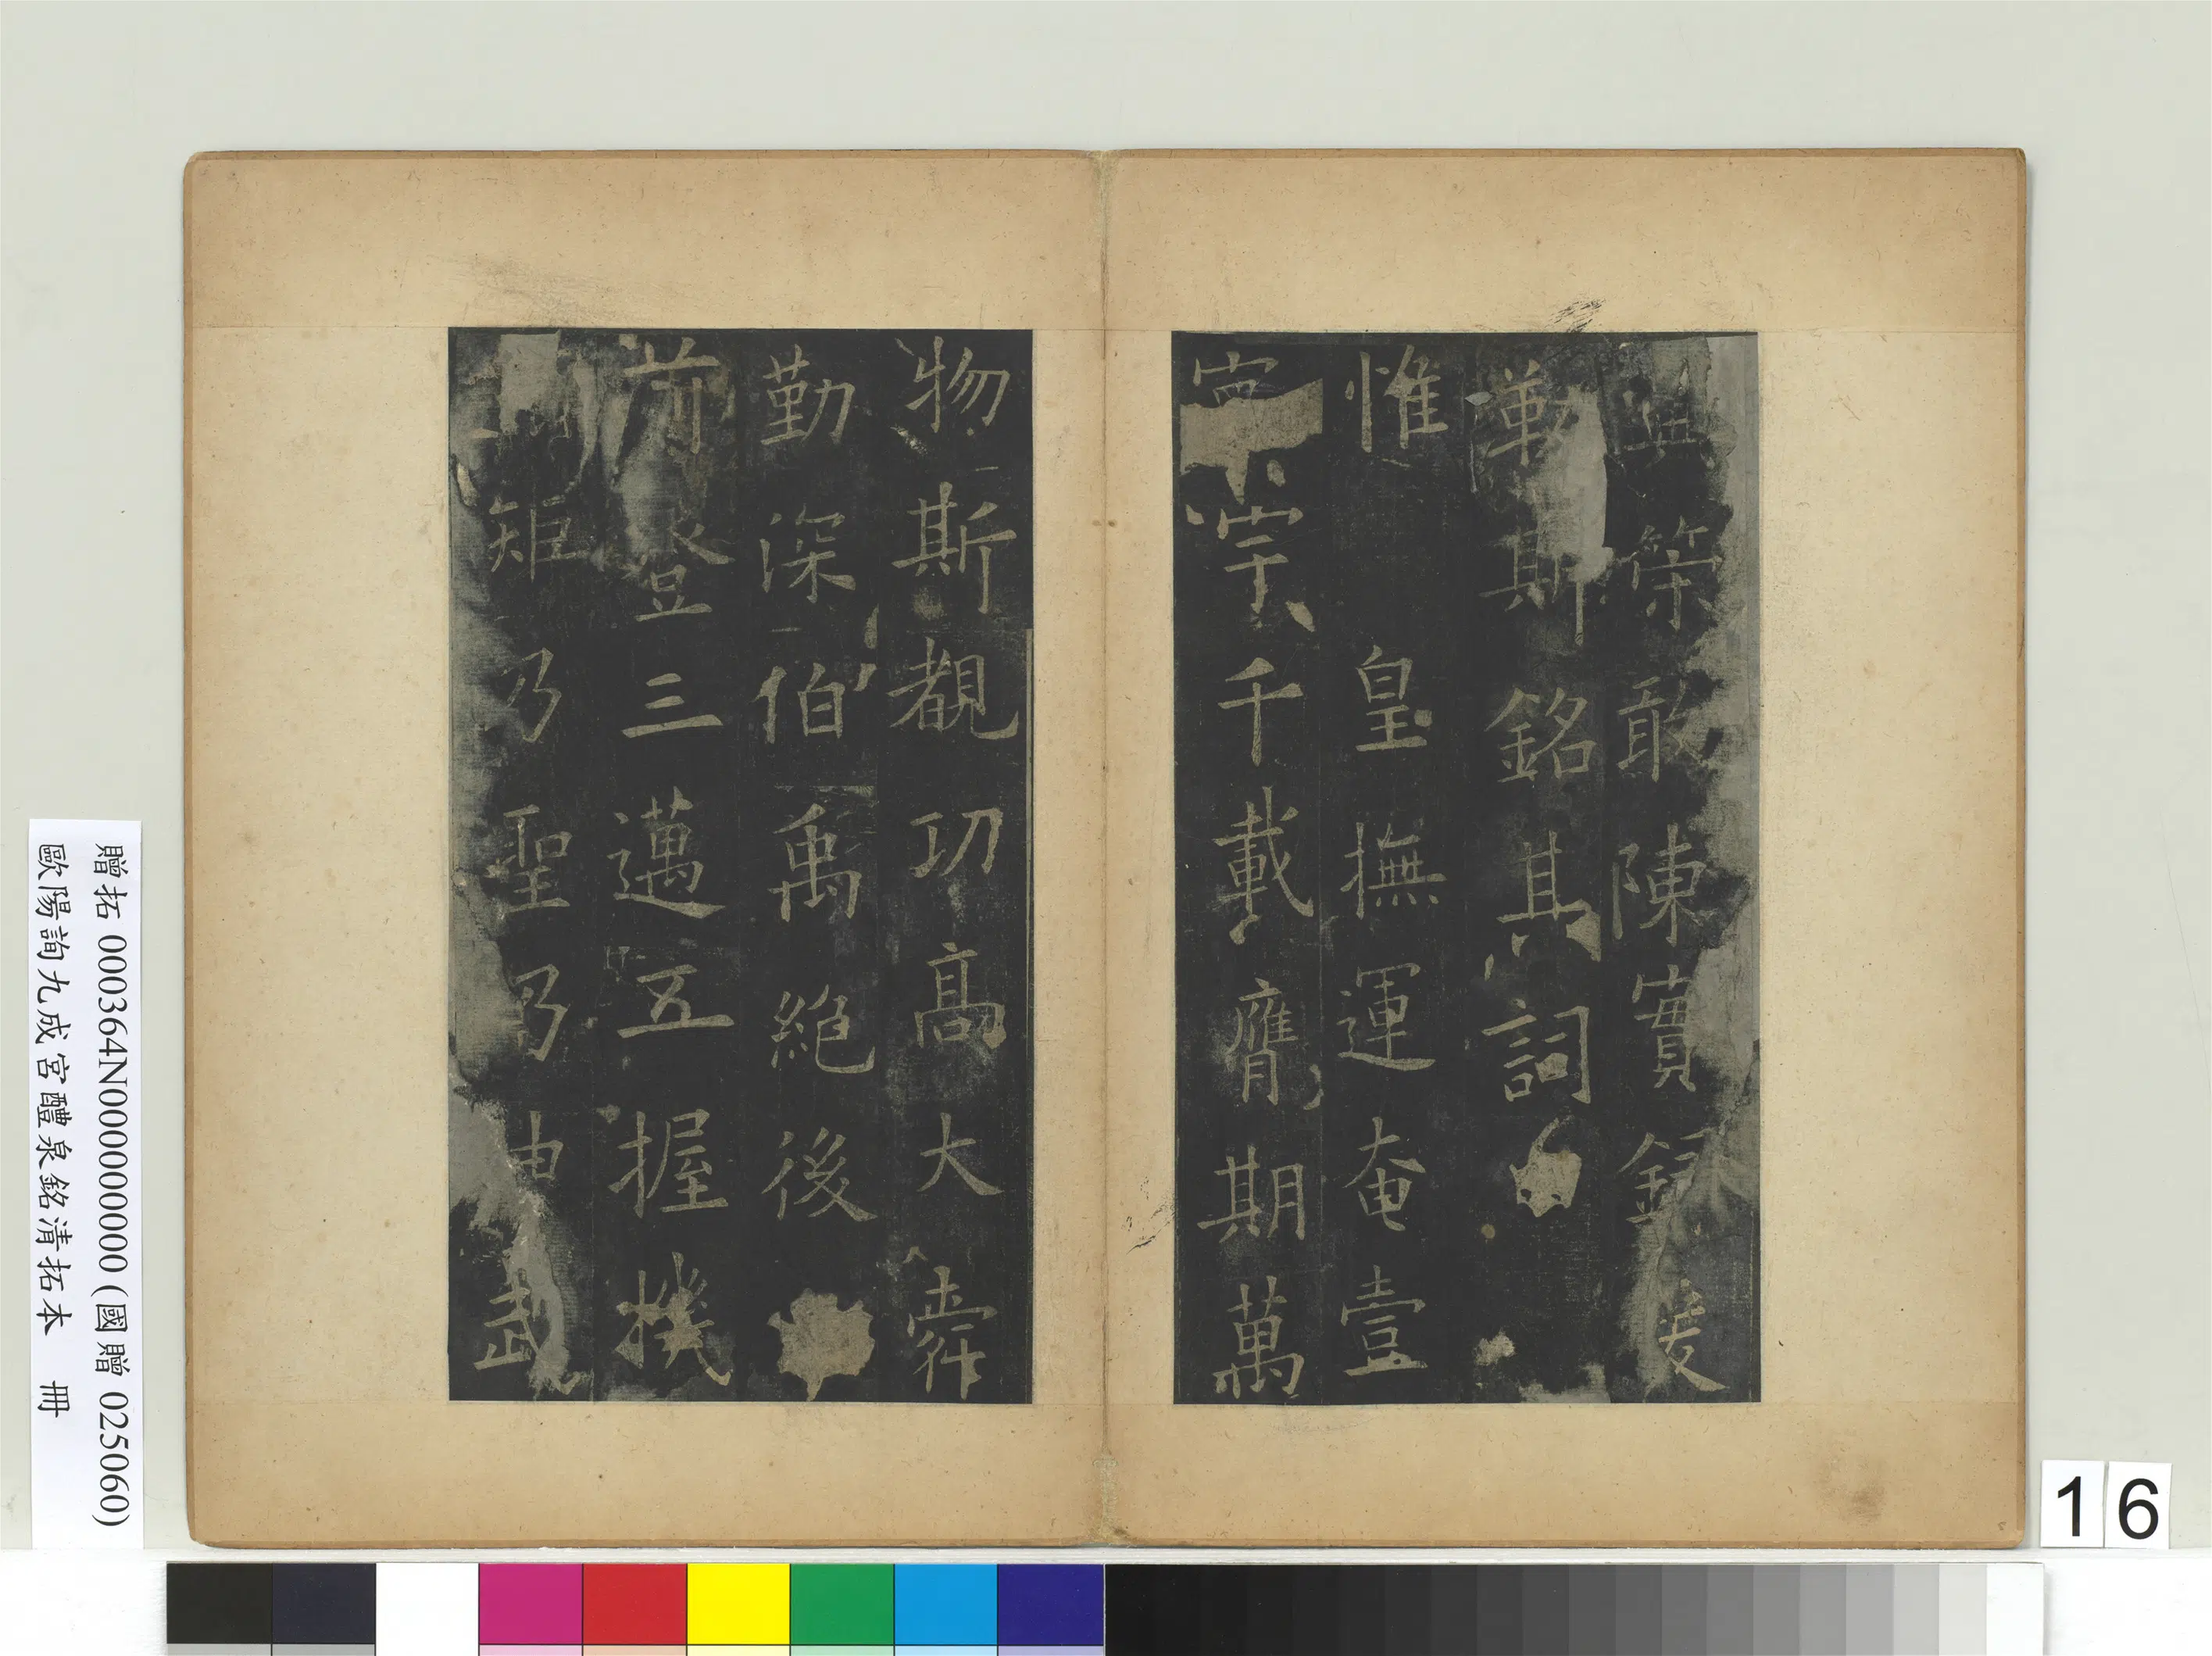 典策敢陳實録爰
勒斯銘其詞
惟 皇撫運奄壹
寰宇千載膺期萬
物斯覩功高大舜
勤深伯禹絶後
前登三邁五握機
矩乃聖乃神武
贈拓 000364N000000000 (國贈 025060)
歐陽詢九成宮醴泉銘清拓本 冊
16